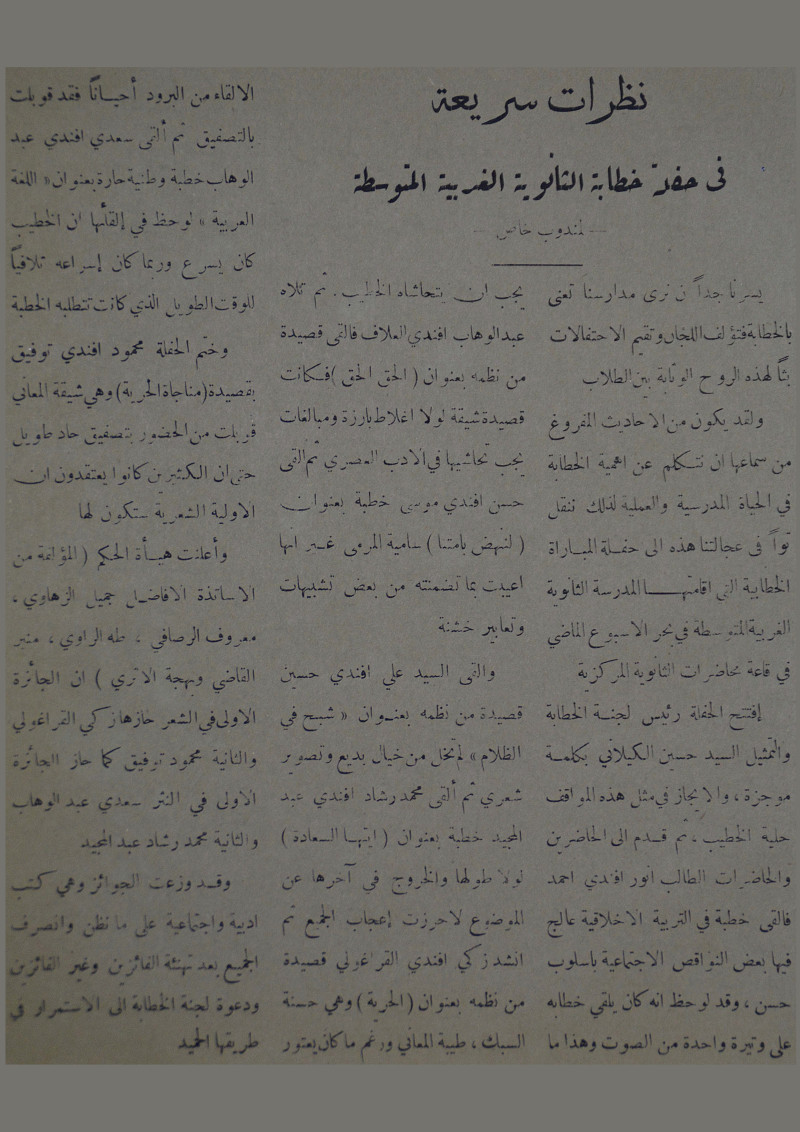 نظرات سريعة
في حفلة خطابة الثانوية الغربية المتوسطة
— لمندوب خاص —
يسرنا جداً ن نرى مدارسنا تعنى
بالخطابة فتؤلف اللجان وتقيم الاحتفالات
بثاً لهذه الروح الوثابة بين الطلاب
ولقد يكون من الاحاديث المفروغ
من سماعها ان نتكلم عن اهمية الخطابة
في الحياة المدرسية والعملية لذلك ننتقل
تواً في عجالتنا هذه الى حفلة المباراة
الخطابية التي اقامتها المدرسة الثانوية
الغربية المتوسطة في بحر الاسبوع الماضي
في قاعة محاضرات الثانوية المركزية
إفتتح الحفلة رئيس لجنة الخطابة
والتمثيل السيد حسين الكيلاني بكلمة
موجزة ، والايجاز في مثل هذه المواقف
حلية الخطيب ، ثم قدم الى الحاضرين
والحاضرات الطالب انور افندي احمد
فالقى خطبة في التربية الاخلاقية عالج
فيها بعض النواقص الاجتماعية باسلوب
حسن ، وقد لوحظ انه كان يلقي خطابه
على وتيرة واحدة من الصوت وهذا ما
يجب ان يتحاشاه الخطيب . ثم تلاه
عبد الوهاب افندي العلاف فالقى قصيدة
من نظمه بعنوان ( الحق الحق ) فكانت
قصيدة شيقة لولا اغلاط بارزة ومبالغات
يجب تحاشيها في الادب العصري ثم القى
حسن افندي موسى خطبة بعنوان
( لننهض بامتنا ) سامية المرمى غير انها
اعيبت بما تضمنته من بعض تشبيهات
وتعابير خشنة
والقى السيد علي افندي حسين
قصيدة من نظمه بعنوان « شبح في
الظلام » لم تخل من خيال بديع وتصوير
شعري ثم ألقى محمد رشاد افندي عبد
المجيد خطبة بعنوان ( ايتها السعادة )
لولا طولها والخروج في آخرها عن
الموضوع لاحرزت إعجاب الجميع ثم
انشد زكي افندي القراغولي قصيدة
من نظمه بعنوان ( الحرية ) وهي حسنة
السبك ، طيبة المعاني ورغم ما كان يعتور
الالقاء من البرود أحياناً فقد قوبلت
بالتصفيق ثم ألقى سعدي افندي عبد
الوهاب خطبة وطنية حارة بعنوان « اللغة
العربية » لوحظ في إلقائها ان الخطيب
كان يسرع وربما كان إسراعه تلافياً
للوقت الطويل الذي كانت تتطلبه الخطبة
وختم الحفلة محمود افندي توفيق
بقصيدة ( مناجاة الحرية ) وهي شيقة المعاني
قوبلت من الحضور بتصفيق حاد طويل
حتى ان الكثيرين كانوا يعتقدون ان
الاولية الشعرية ستكون لها
وأعلنت هيأة الحكم ( المؤلفة من
الاساتذة الافاضل جميل الزهاوي ،
معروف الرصافي ، طه الراوي ، منير
القاضي وبهجة الاثري ) ان الجائزة
الاولى في الشعر حازها زكي القراغولي
والثانية محمود توفيق كما حاز الجائزة
الاولى في النثر سعدي عبد الوهاب
والثانية محمد رشاد عبد المجيد
وقد وزعت الجوائز وهي كتب
ادبية واجتماعية على ما نظن وانصرف
الجميع بعد تهنئة الفائزين وغير الفائزين
ودعوة لجنة الخطابة الى الاستمرار في
طريقها الحميد